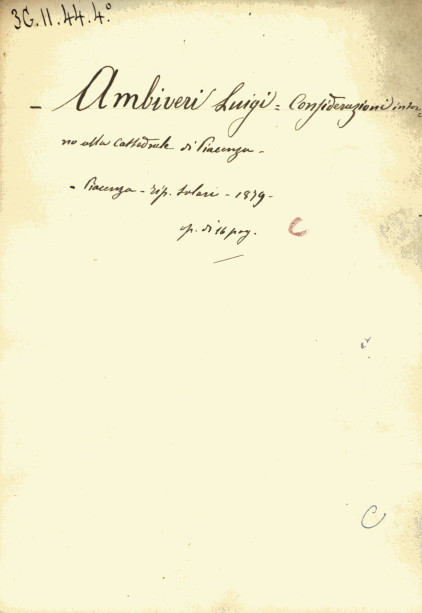 3G.II.44.4.°
– Ambiveri Luigi = Considerazioni intor-
no alla Cattedrale di Piacenza –
– Piacenza – Tip. Solari – 1879 –
op. di 16 pag.
C
C